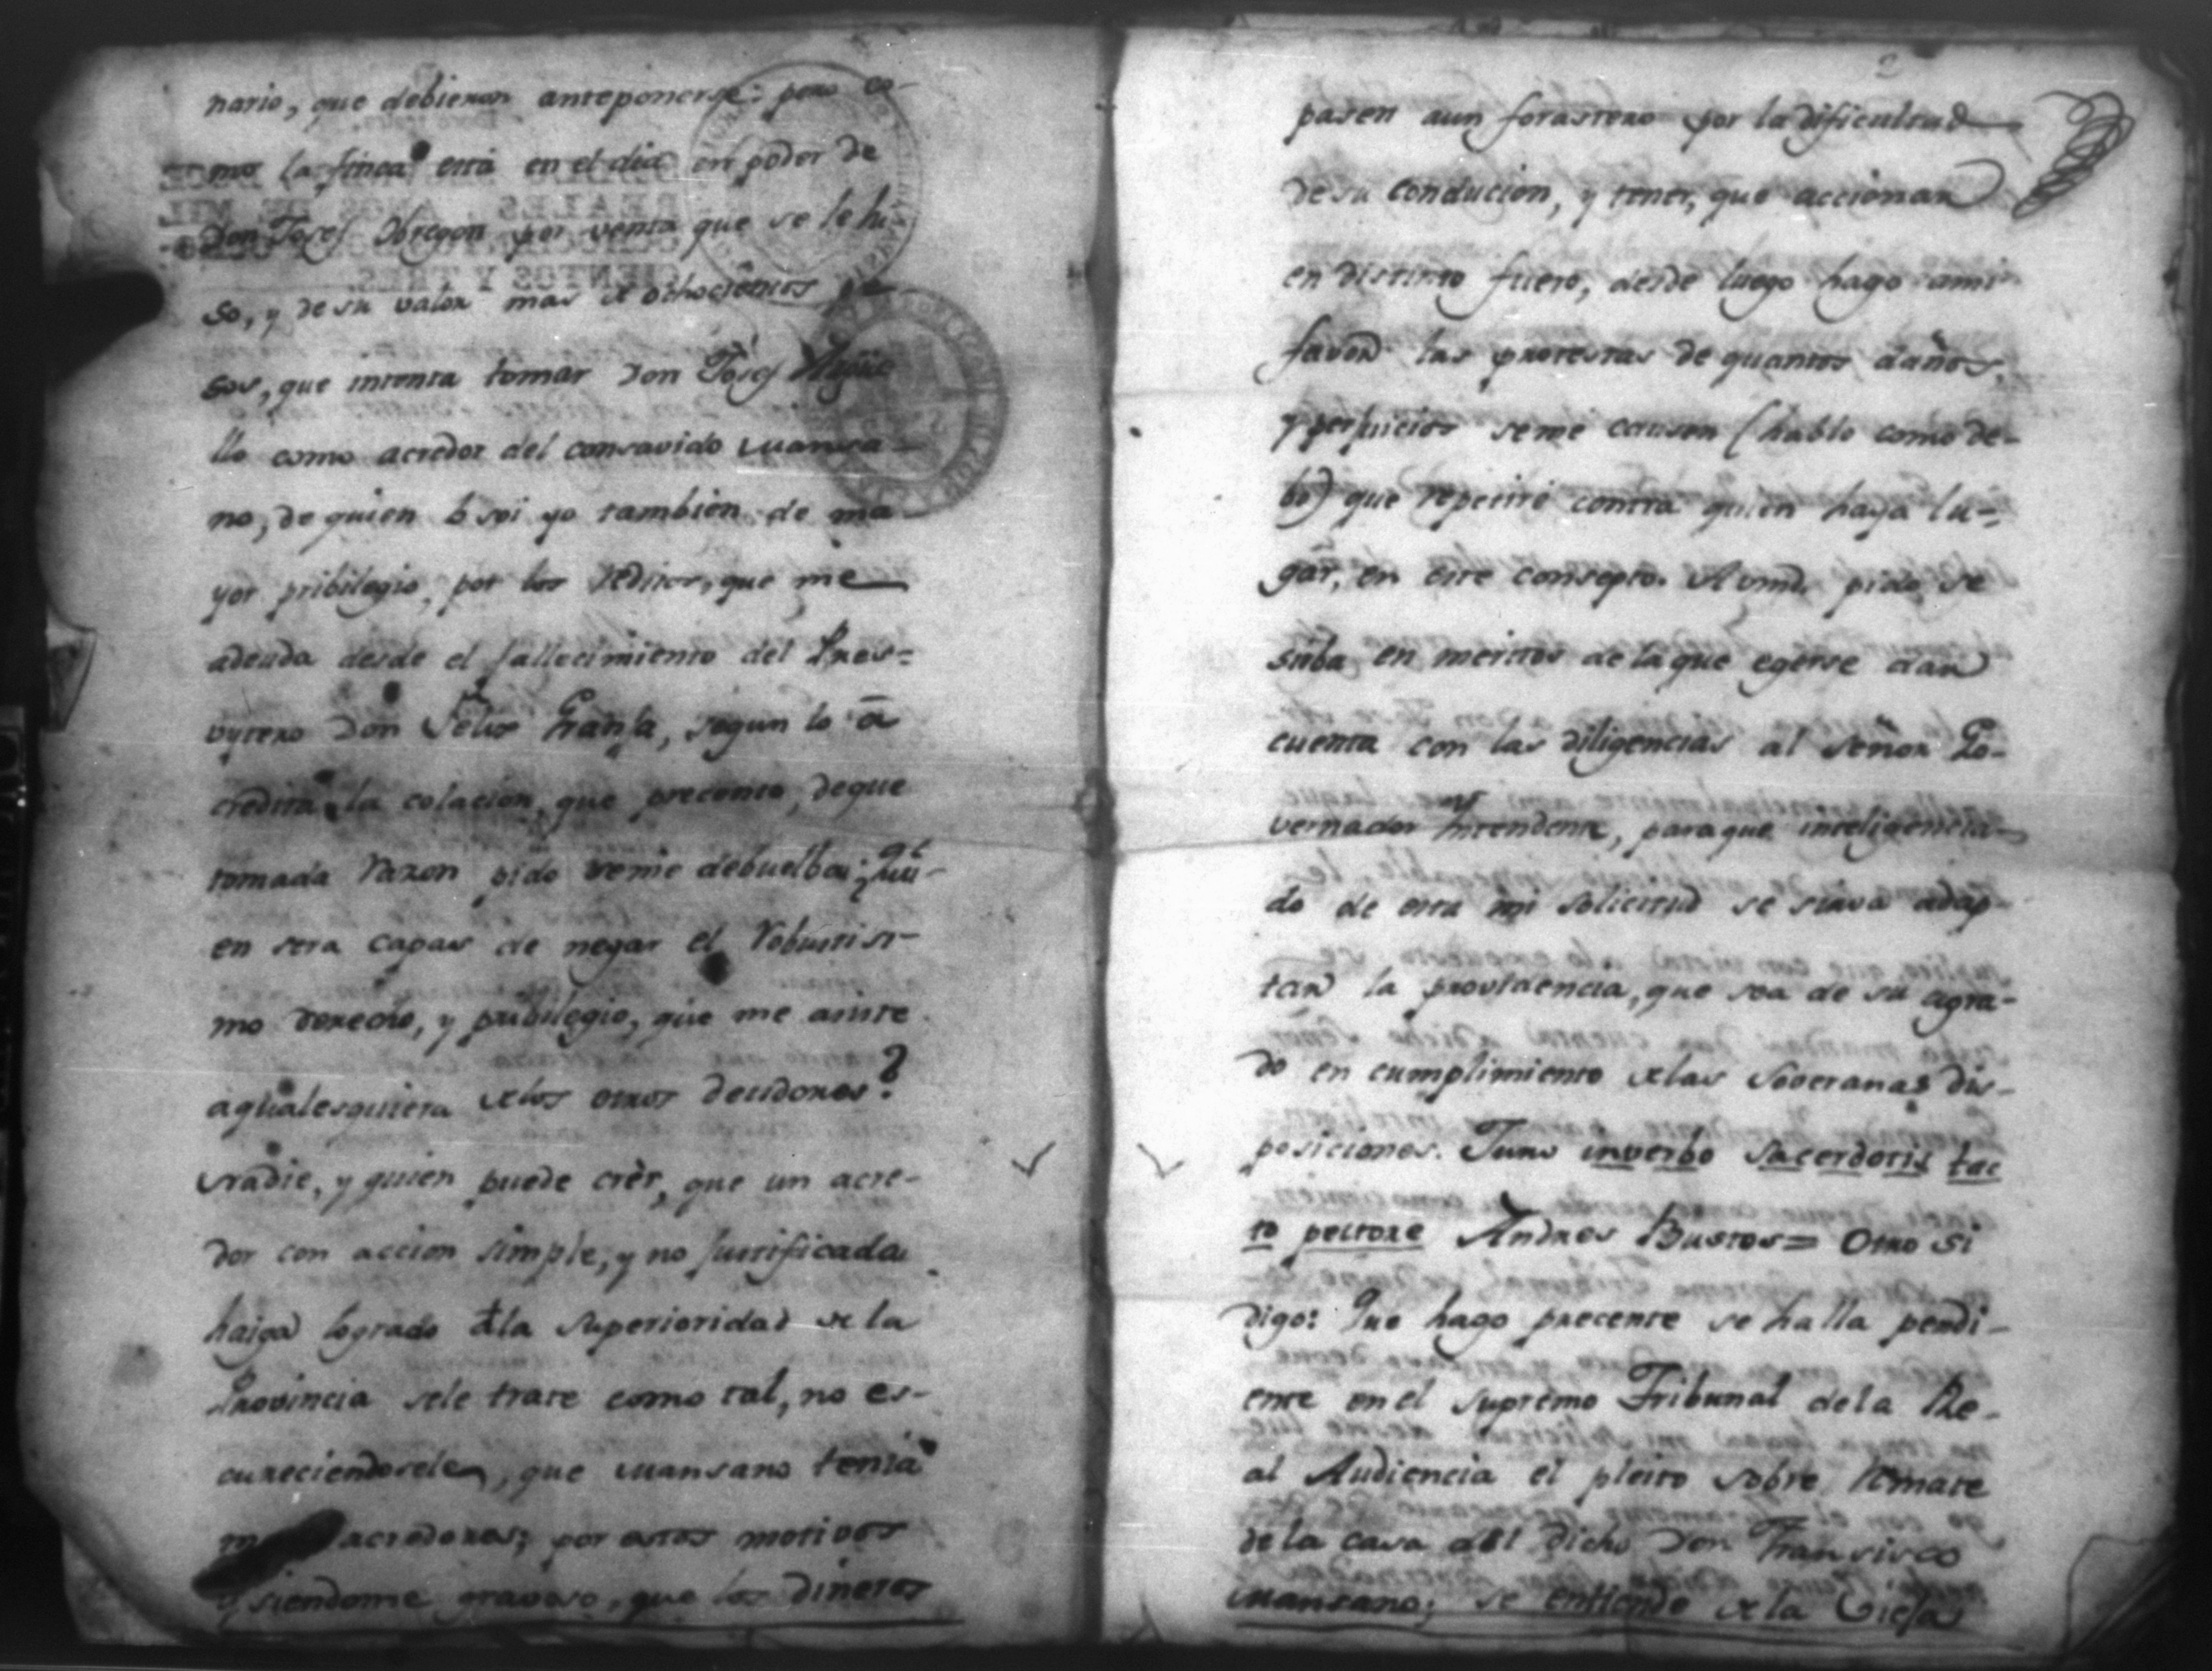 nario, que debieron anteponerse: pero co-
mo la finca está en el dia en poder de
Don Josef Obregon por venta que se le hi-
so, y de su valor mas de ochocientos pe-
sos, que intenta tomar Don Josef
llo como acredor del consavido Mansa-
no, de quien lo soi yo tambien de ma-
yor pribilegio, por los reditos, que me
adeuda desde el fallecimiento del Pres-
vytero Don Felis Granja, segun lo a-
credita la colacion, que precento, deque
tomada razon pido seme debuelba; Qui-
en sera capas de negar el robustisi-
mo derecho, y pribilegio, que me asiste
aqualesquiera de los otros deudores?
Nadie, y quien puede crèr, que un acre-
dor con accion simple, y no justificada
haiga logrado de la Superioridad de la
Provincia sele trate como tal, no es-
cureciendosele, que Mansano tenia
acredores; por estos motivos
y siendome gravoso, que los dineros
2
pasen aun forastero por la dificultad
de su conducion, y tener, que accionar
en distinto fuero, desde luego hago ami
favor las protestas de quantos daños,
y perjuicios seme causen (hablo como de-
bo) que repetiré contra quien haya lu-
gar, en este consepto. A Vmd. pido, se
sirba en meritos de la que egerse dar
cuenta con las diligencias al Señor Go-
vernador Intendente, paraque inteligencia-
do de esta mi solicitud se sirva adap-
tar la providencia, que sea de su agra-
do en cumplimiento de las Soveranas dis-
posiciones. Juro inverbo Sacerdotis tac
to pectore Andres Bustos = Otro si
digo: Que hago precente se halla pendi-
ente en el supremo Tribunal dela Re-
al Audiencia el pleito sobre remate
dela casa del dicho Don Fransisco
Mansano; se entiende de la Vieja